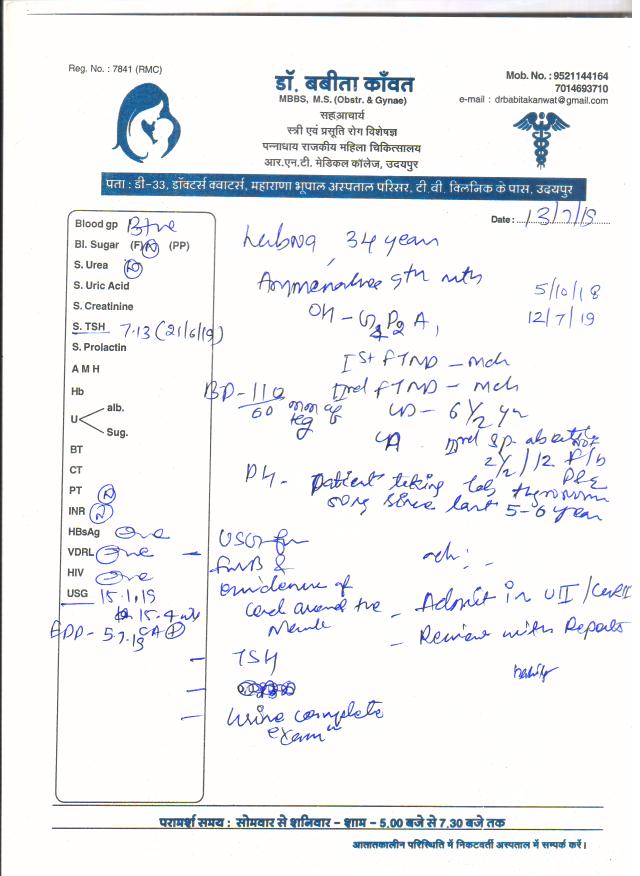 Reg. No. : 7841 (RMC)
डॉ. बबीता काँवत
MBBS, M.S. (Obstr. & Gynae)
सहआचार्य
स्त्री एवं प्रसूति रोग विशेषज्ञ
पन्नाधाय राजकीय महिला चिकित्सालय
आर.एन.टी. मेडिकल कॉलेज, उदयपुर
Mob. No. : 9521144164
7014693710
e-mail : drbabitakanwat@gmail.com
पता : डी-33, डॉक्टर्स क्वाटर्स, महाराणा भूपाल अस्पताल परिसर, टी.वी. क्लिनिक के पास, उदयपुर
Date : 13/7/19
Blood gp B+ve
Bl. Sugar (F) N (PP)
S. Urea N
S. Uric Acid
S. Creatinine
S. TSH 7.13 (21/6/19)
S. Prolactin
A M H
Hb
U alb.
Sug.
BT
CT
PT N
INR N
HBsAg
VDRL
HIV
USG 15.1.19
15.4 wks
EDD - 5.7.19
34 year
Ammenorrhea 9th mth
5/10/18
12/7/19
OH -
Ist FTND - mch
BP - 110/60 mm of Hg
IInd FTND - mch
LD - 6 1/2 yr
LA
2 1/2 /12
Patient taking tab thyronorm
50 mg since last 5-6 year
USG for
FWB &
evidence of
cord around the
neck
Adv :-
- Admit in U II /
- Review with Reports
- TSH
- Urine complete
exam
परामर्श समय : सोमवार से शनिवार - शाम - 5.00 बजे से 7.30 बजे तक
आतातकालीन परिस्थिति में निकटवर्ती अस्पताल में सम्पर्क करें।